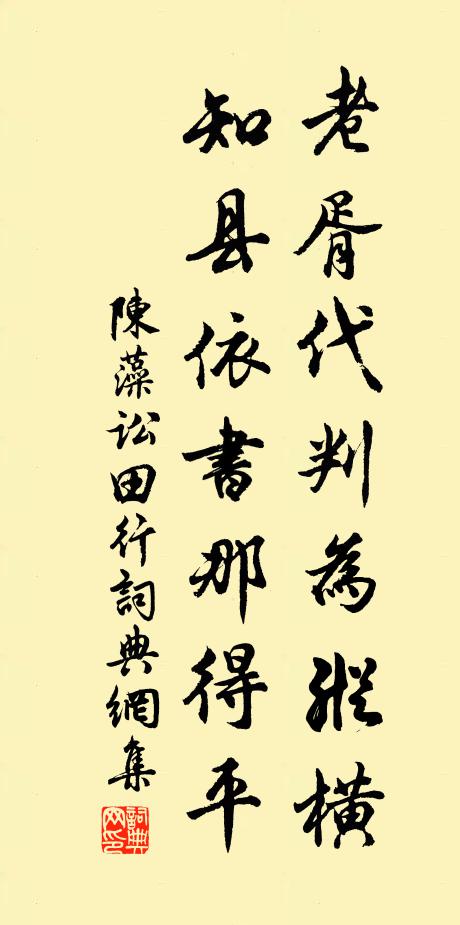 老胥代判為縱橫
知县依書那得平
陳藻訟田行詞典網集
詞典网印